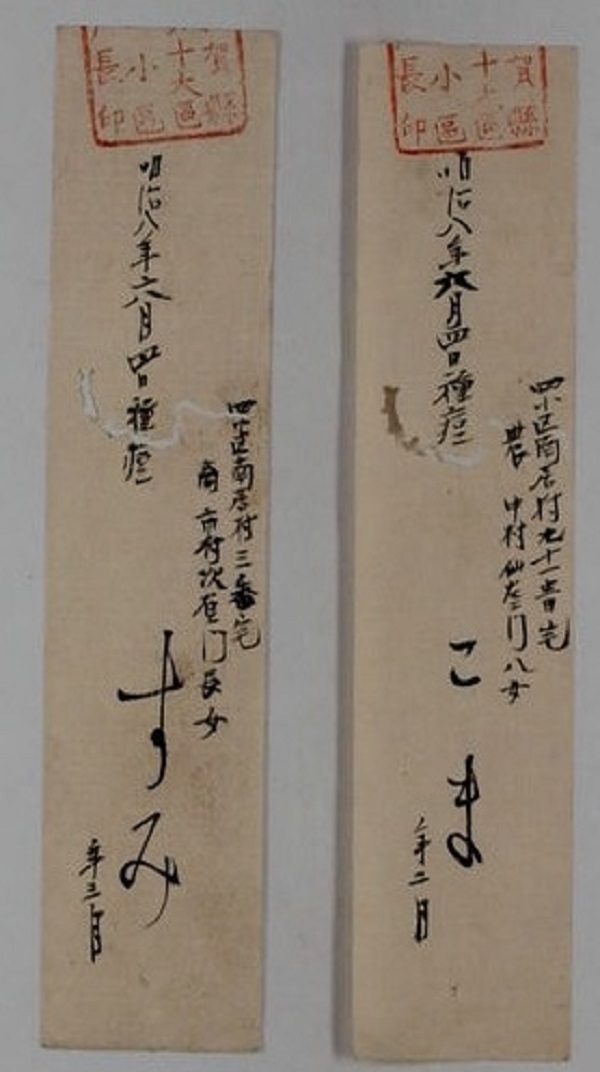 賀縣
十大區
小區
長印
四小区南居村九十一番宅
農 中村仙左エ門八女
明治八年六月四日種痘
こま
年二月
賀縣
十大區
小區
長印
四小区南居村三番宅
商 市村次右エ門長女
明治八年六月四日種痘
すみ
年三月